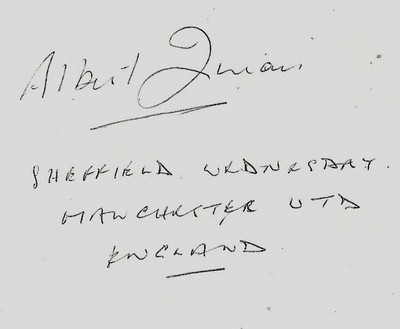 Albert Quixall
SHEFFIELD WEDNESDAY.
MANCHESTER UTD
ENGLAND